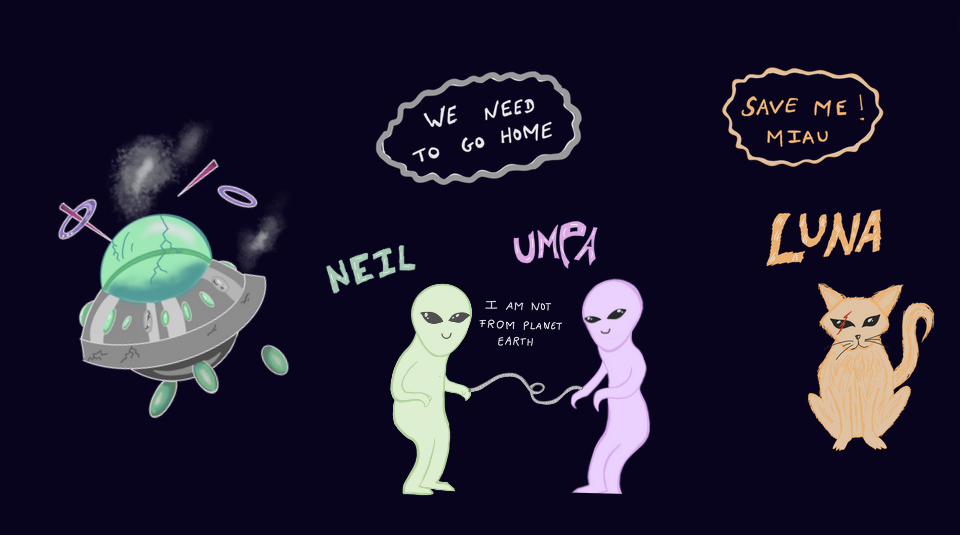 WE NEED
TO GO HOME
SAVE ME!
MIAU
LUNA
NEIL
UMPA
I AM NOT
FROM PLANET
EARTH